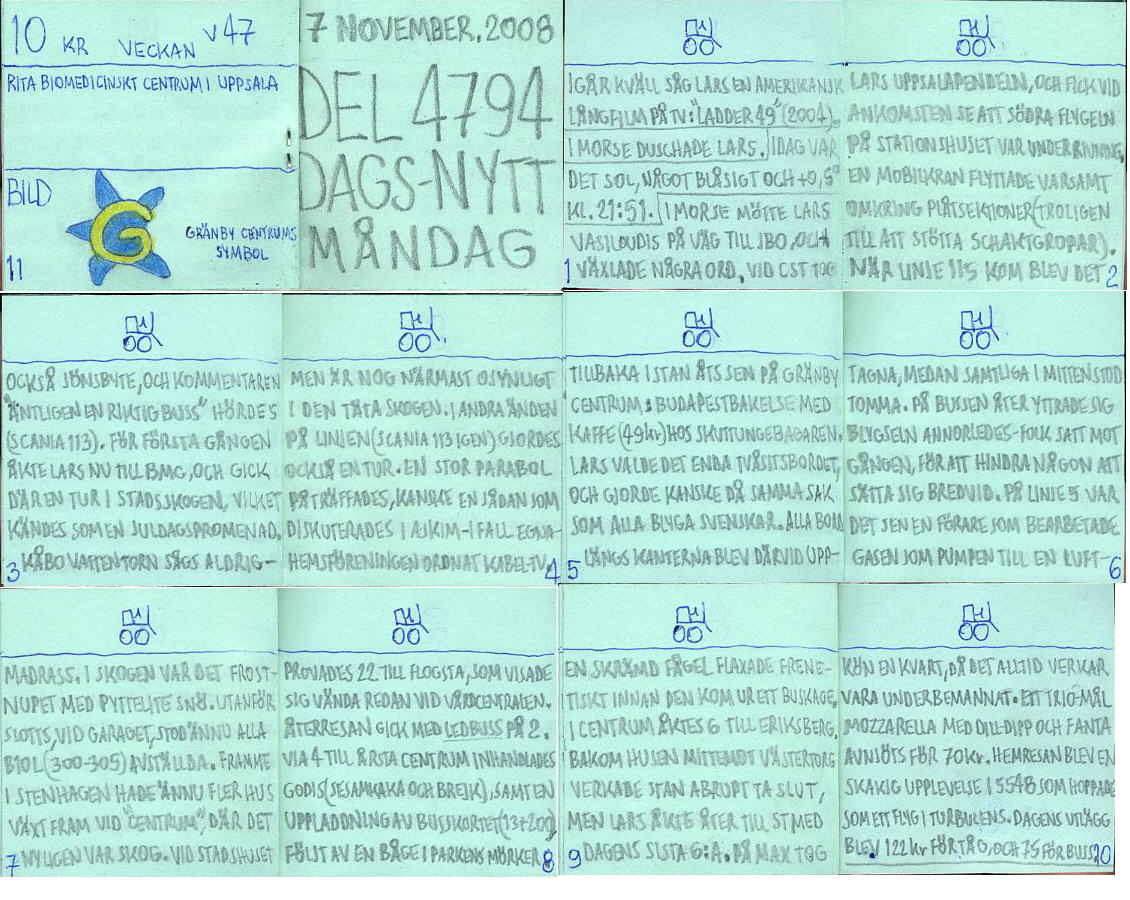 10 KR VECKAN V47
RITA BIOMEDICINSKT CENTRUM I UPPSALA
BILD
GRÄNBY CENTRUMS
SYMBOL
11
G
7 NOVEMBER, 2008
DEL 4794
DAGS-NYTT
MÅNDAG
IGÅR KVÄLL SÅG LARS EN AMERIKANSK
LÅNGFILM PÅ TV: "LADDER 49" (2004).
I MORSE DUSCHADE LARS. IDAG VAR
DET SOL, NÅGOT BLÅSIGT OCH +0,5°
KL. 21:51. I MORSE MÖTTE LARS
VASILOUDIS PÅ VÄG TILL JBO, OCH
VÄXLADE NÅGRA ORD. VID CST TOG
1
LARS UPPSALAPENDELN, OCH FICK VID
ANKOMSTEN SE ATT SÖDRA FLYGELN
PÅ STATIONSHUSET VAR UNDER RIVNING.
EN MOBILKRAN FLYTTADE VARSAMT
OMKRING PLÅTSEKTIONER (TROLIGEN
TILL ATT STÖTTA SCHAKTGROPAR).
NÄR LINJE 115 KOM BLEV DET
2
OCKSÅ JÖNSBYTE, OCH KOMMENTAREN
"ÄNTLIGEN EN RIKTIG BUSS" HÖRDES
(SCANIA 113). FÖR FÖRSTA GÅNGEN
ÅKTE LARS NU TILL BMC, OCH GICK
DÄR EN TUR I STADSSKOGEN, VILKET
KÄNDES SOM EN JULDAGSPROMENAD.
KÅBO VATTENTORN SÅGS ALDRIG-
3
MEN ÄR NOG NÄRMAST OSYNLIGT
I DEN TÄTA SKOGEN. I ANDRA ÄNDEN
PÅ LINJEN (SCANIA 113 IGEN) GJORDES
OCKSÅ EN TUR. EN STOR PARABOL
PÅTRÄFFADES, KANSKE EN SÅDAN SOM
DISKUTERADES I ASKIM-IFALL EGNA-
HEMSFÖRENINGEN ORDNAT KABEL-TV.
4
TILLBAKA I STAN ÅTS SEN PÅ GRÄNBY
CENTRUM: BUDAPESTBAKELSE MED
KAFFE (49kr) HOS SKUTTUNGEBAGAREN.
LARS VALDE DET ENDA TVÅSITSBORDET,
OCH GJORDE KANSKE DÅ SAMMA SAK
SOM ALLA BLYGA SVENSKAR. ALLA BORD
LÄNGS KANTERNA BLEV DÄRVID UPP-
5
TAGNA, MEDAN SAMTLIGA I MITTEN STOD
TOMMA. PÅ BUSSEN ÅTER YTTRADE SIG
BLYGSELN ANNORLEDES-FOLK SATT MOT
GÅNGEN, FÖR ATT HINDRA NÅGON ATT
SÄTTA SIG BREDVID. PÅ LINJE 5 VAR
DET SEN EN FÖRARE SOM BEARBETADE
GASEN SOM PUMPEN TILL EN LUFT-
6
MADRASS. I SKOGEN VAR DET FROST-
NUPET MED PYTTELITE SNÖ. UTANFÖR
SLOTTS, VID GARAGET, STOD ÄNNU ALLA
B10L (300-305) AVSTÄLLDA. FRAMME
I STENHAGEN HADE ÄNNU FLER HUS
VÄXT FRAM VID "CENTRUM", DÄR DET
NYLIGEN VAR SKOG. VID STADSHUSET
7
PROVADES 22 TILL FLOGSTA, SOM VISADE
SIG VÄNDA REDAN VID VÅRDCENTRALEN.
ÅTERRESAN GICK MED LEDBUSS PÅ 2.
VIA 4 TILL ÅRSTA CENTRUM INHANDLADES
GODIS (SESAMKAKA OCH BREJK), SAMT EN
UPPLADDNING AV BUSSKORTET (13+200)
FÖLJT AV EN BÅGE I PARKENS MÖRKER.
8
EN SKRÄMD FÅGEL FLAXADE FRENE-
TISKT INNAN DEN KOM UR ETT BUSKAGE.
I CENTRUM ÅKTES 6 TILL ERIKSBERG.
BAKOM HUSEN MITTEMOT VÄSTERTORG
VERKADE STAN ABRUPT TA SLUT,
MEN LARS ÅKTE ÅTER TILL ST MED
DAGENS SISTA 6:A. PÅ MAX TOG
9
KÖN EN KVART, DÅ DET ALLTID VERKAR
VARA UNDERBEMANNAT. ETT TRIO-MÅL
MOZZARELLA MED DILL-DIPP OCH FANTA
AVNJÖTS FÖR 70kr. HEMRESAN BLEV EN
SKAKIG UPPLEVELSE I 5548 SOM HOPPADE
SOM ETT FLYG I TURBULENS. DAGENS UTLÄGG
BLEV 122 kr FÖR TÅG, OCH 75 FÖR BUSS.
10